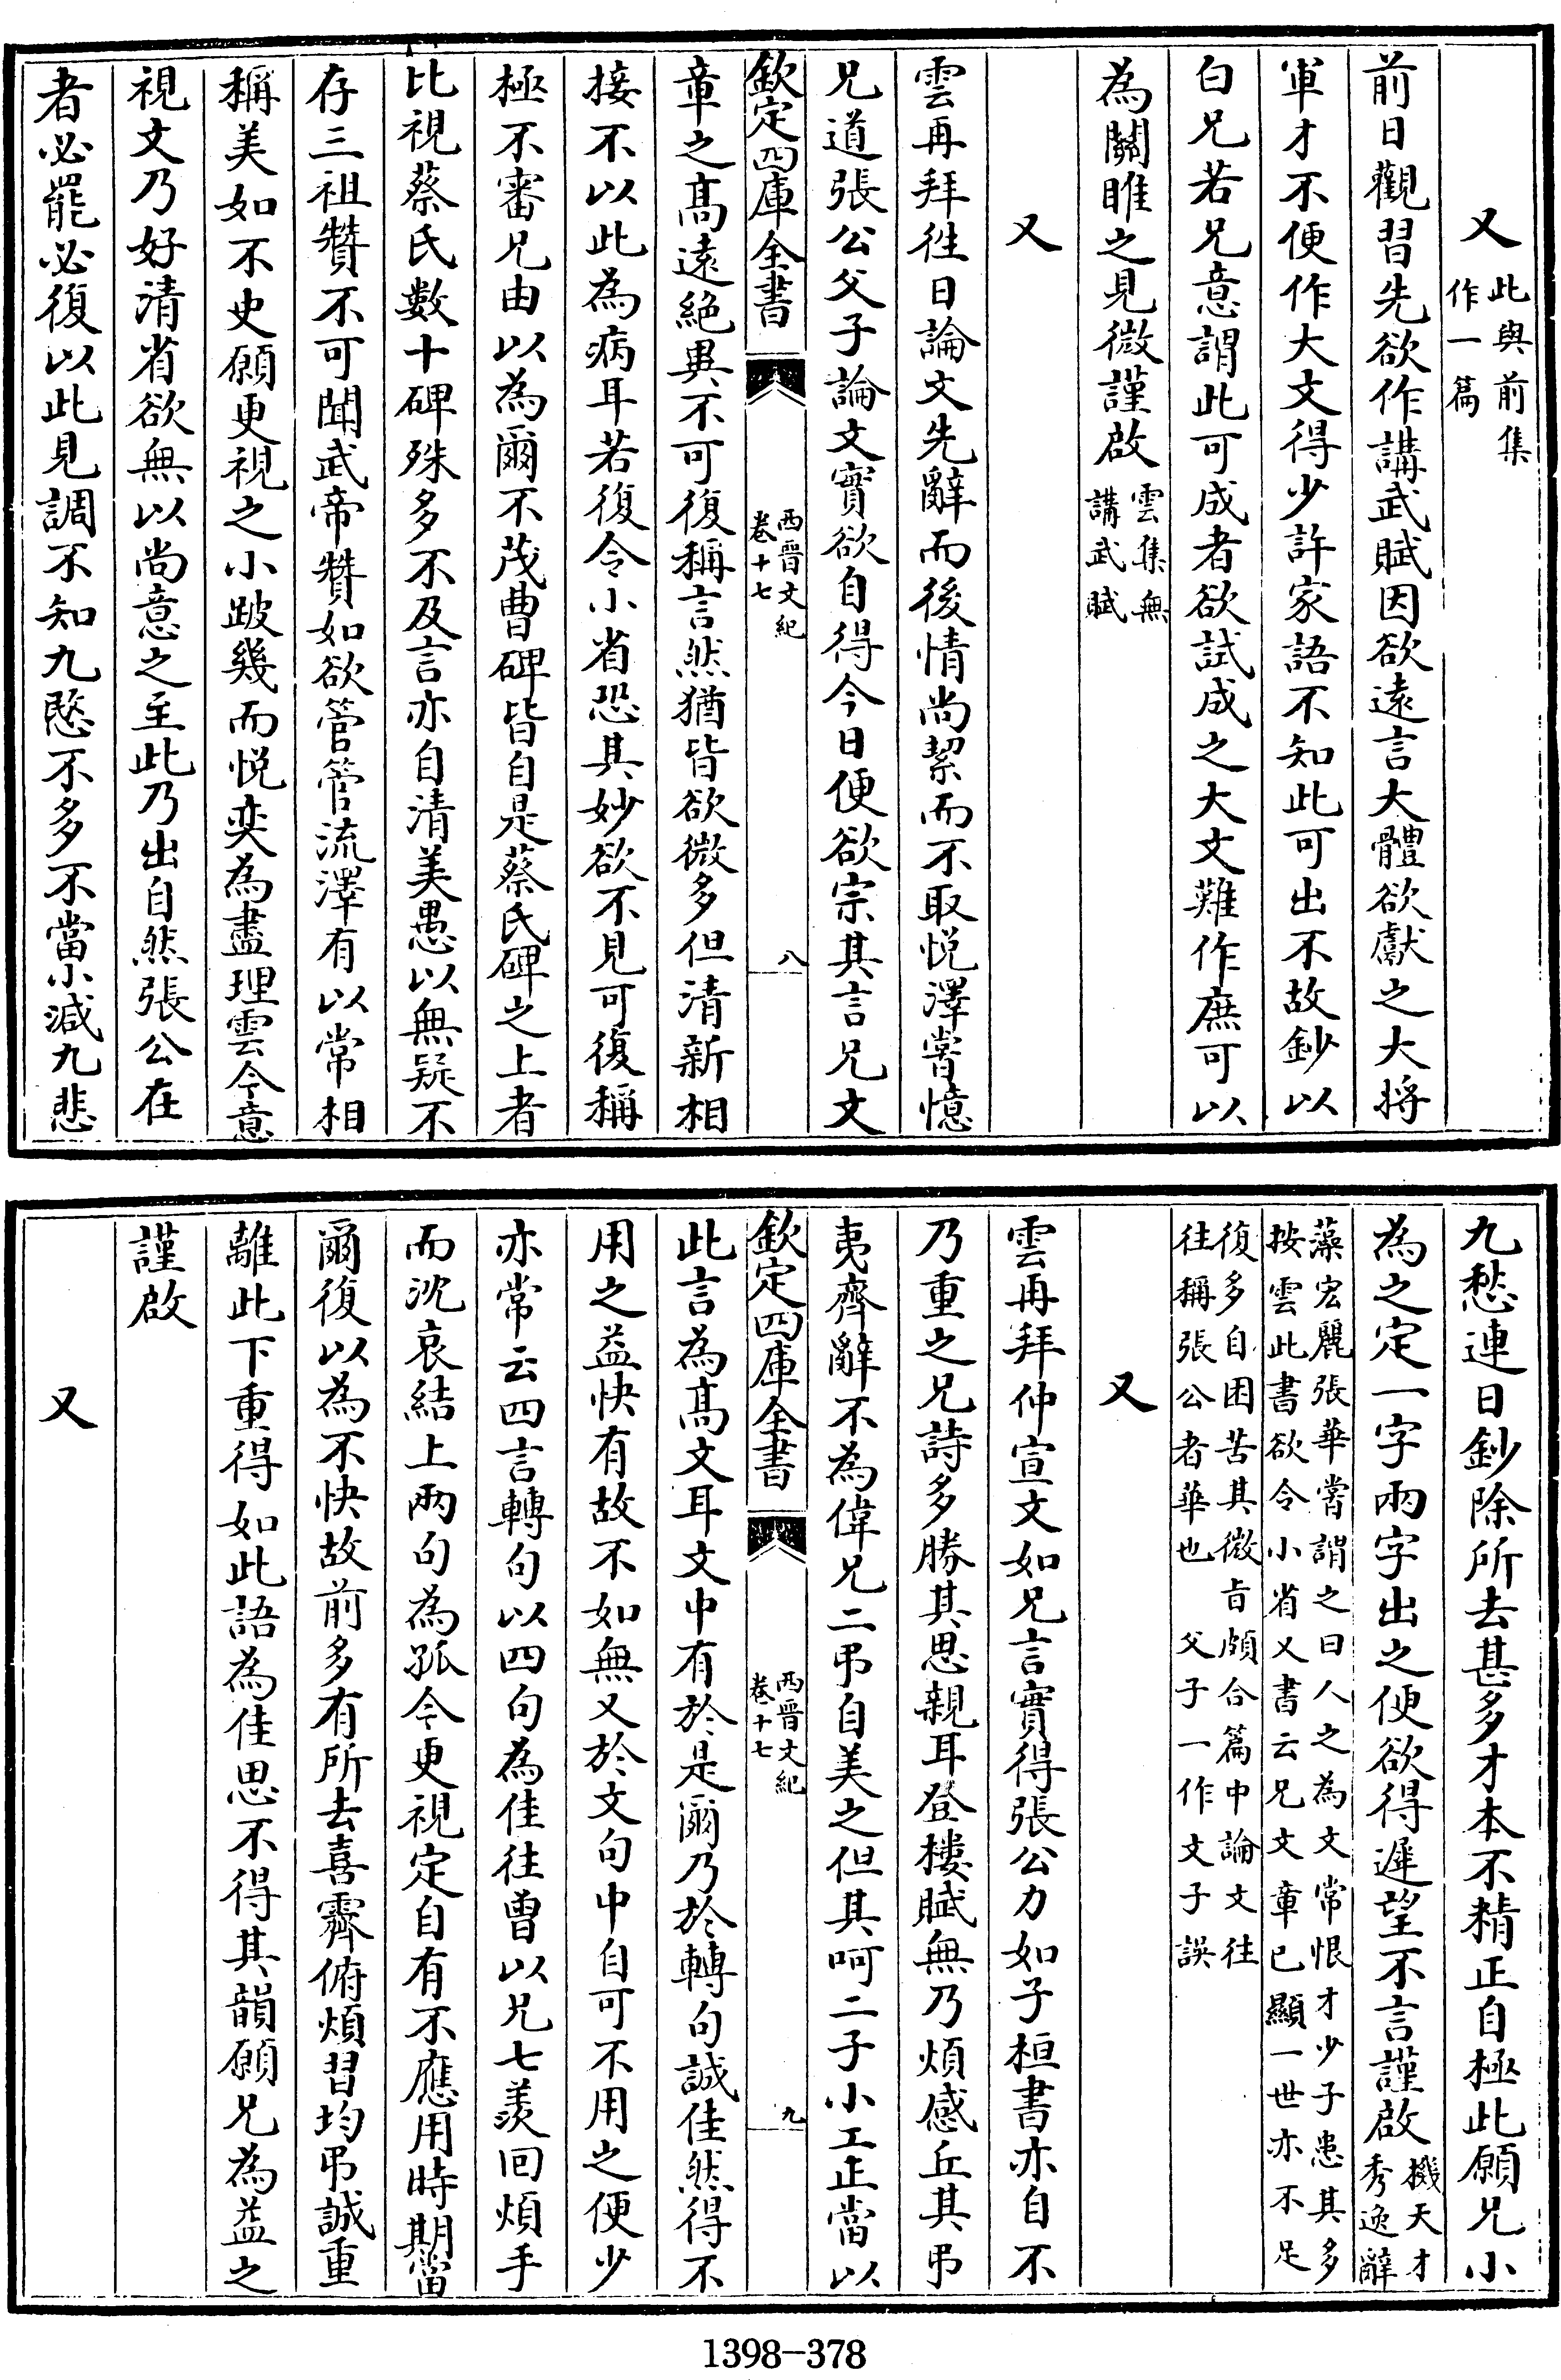 又此與前集
作一篇
前日觀習先欲作講武賦因欲遠言大體欲獻之大將
軍才不便作大文得少許家語不知此可出不故鈔以
白兄若兄意謂此可成者欲試成之大文難作庶可以
為關雎之見微謹啟雲集無
講武賦
又
雲再拜徃日論文先辭而後情尚絜而不取悅澤嘗憶
兄道張公父子論文實欲自得今日便欲宗其言兄文
欽定四庫全書
西晉文紀
卷十七
八
章之髙遠絶異不可復稱言然猶皆欲微多但清新相
接不以此為病耳若復令小省恐其妙欲不見可復稱
極不審兄由以為爾不茂曹碑皆自是蔡氏碑之上者
比視蔡氏數十碑殊多不及言亦自清美愚以無疑不
存三祖贊不可聞武帝贊如欲管管流澤有以常相
稱美如不史願更視之小跛幾而悅奕為盡理雲今意
視文乃好清省欲無以尚意之至此乃出自然張公在
者必罷必復以此見調不知九愍不多不當小減九悲
九愁連日鈔除所去甚多才本不精正自極此願兄小
為之定一字兩字出之便欲得遲望不言謹啟機天才
秀逸辭
藻宏麗張華嘗謂之曰人之為文常恨才少子患其多
按雲此書欲令小省又書云兄文章已顯一世亦不足
復多自困苦其微旨頗合篇中論文往
往稱張公者華也　父子一作文子誤
又
雲再拜仲宣文如兄言實得張公力如子桓書亦自不
乃重之兄詩多勝其思親耳登樓賦無乃煩感丘其弔
夷齊辭不為偉兄二弔自美之但其呵二子小工正當以
欽定四庫全書
西晉文紀
卷十七
九
此言為髙文耳文中有於是爾乃於轉句誠佳然得不
用之益快有故不如無又於文句中自可不用之便少
亦常云四言轉句以四句為佳往曾以兄七羨囘煩手
而沈哀結上兩句為孤今更視定自有不應用時期當
爾復以為不快故前多有所去喜霽俯煩習坸弔誠重
離此下重得如此語為佳思不得其韻願兄為益之
謹啟
又
1398-378